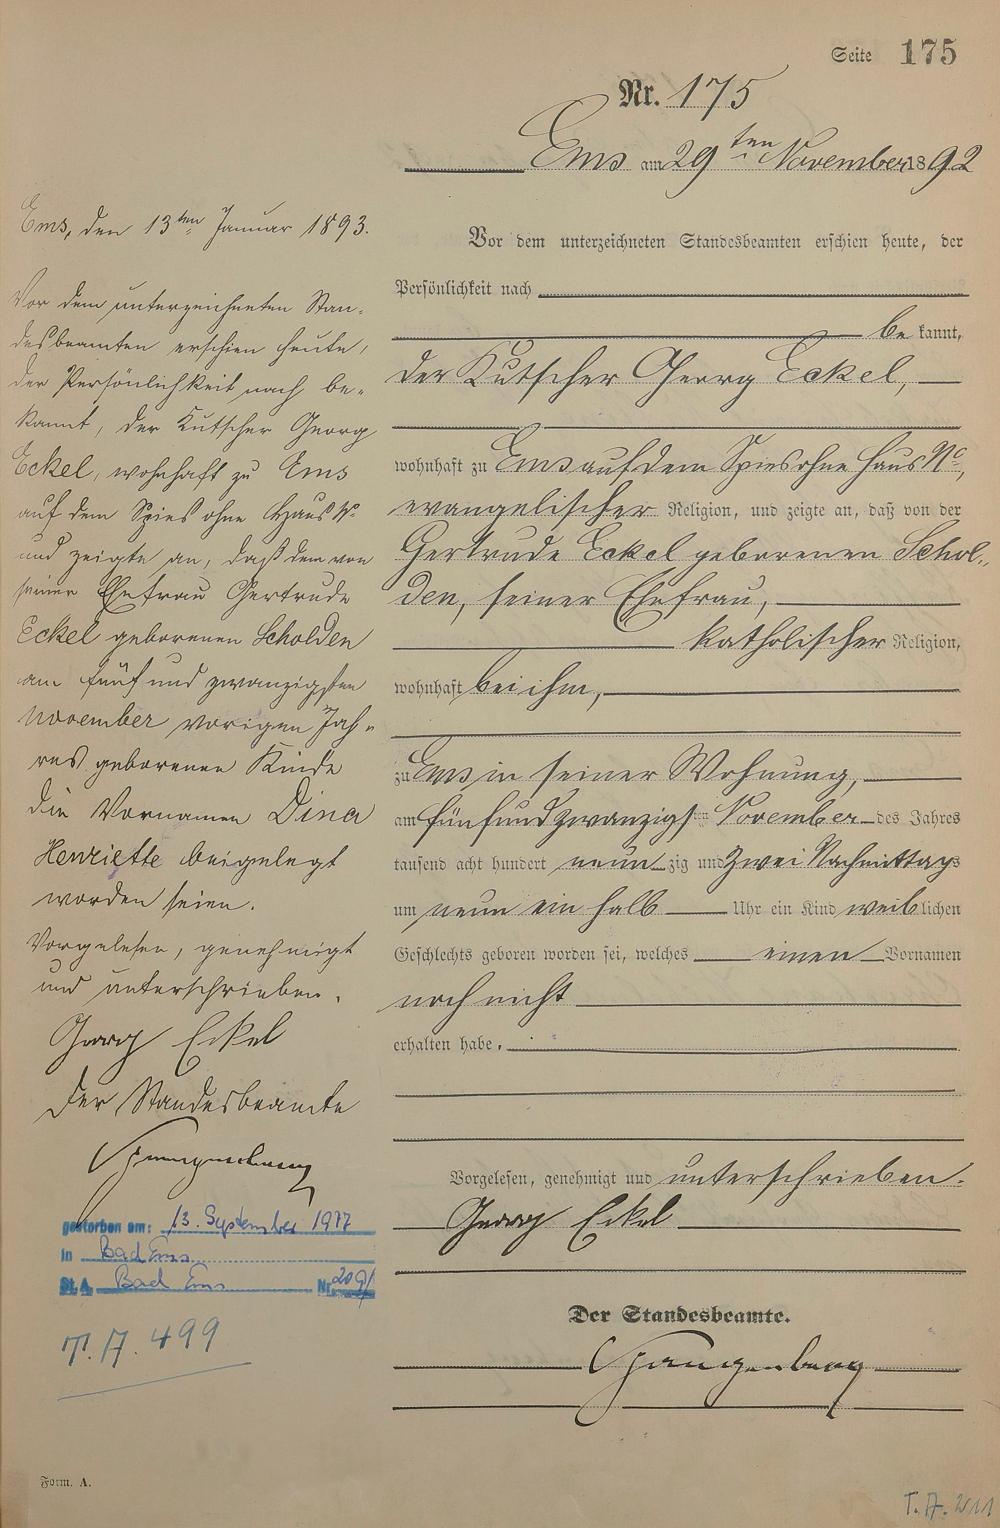 Seite 175
Nr. 175
Ems am 29ten November 1892
Vor dem unterzeichneten Standesbeamten erschien heute, der
Persönlichkeit nach
be kannt,
der Kutscher Georg Eckel,
wohnhaft zu Ems auf dem Spies ohne Haus No,
evangelischer Religion, und zeigte an, daß von der
Gertrude Eckel geborenen Schol-
den, seiner Ehefrau,
katholischer Religion,
wohnhaft bei ihm,
zu Ems in seiner Wohnung,
am fünfundzwanzigsten November des Jahres
tausend acht hundert neunzig und zwei Nachmittags
um neun ein halb Uhr ein Kind weiblichen
Geschlechts geboren worden sei, welches einen Vornamen
noch nicht
erhalten habe.
Vorgelesen, genehmigt und unterschrieben.
Georg Eckel
Der Standesbeamte.
Spangenberg
Ems, den 13ten Januar 1893.
Vor dem unterzeichneten Stan-
desbeamten erschien heute,
der Persönlichkeit nach be-
kannt, der Kutscher Georg
Eckel, wohnhaft zu Ems
auf dem Spies ohne Haus No
und zeigte an, daß dem von
seiner Ehefrau Gertrude
Eckel geborenen Scholden
am fünf und zwanzigsten
November vorigen Jah-
res geborenen Kinde
die Vornamen Dina
Henriette beigelegt
worden seien.
Vorgelesen, genehmigt
und unterschrieben.
Georg Eckel
Der Standesbeamte
Spangenberg
gestorben am: 13. September 1977
in Bad Ems
St. A. Bad Ems Nr.
T. A. 499
Form. A.
T. A.